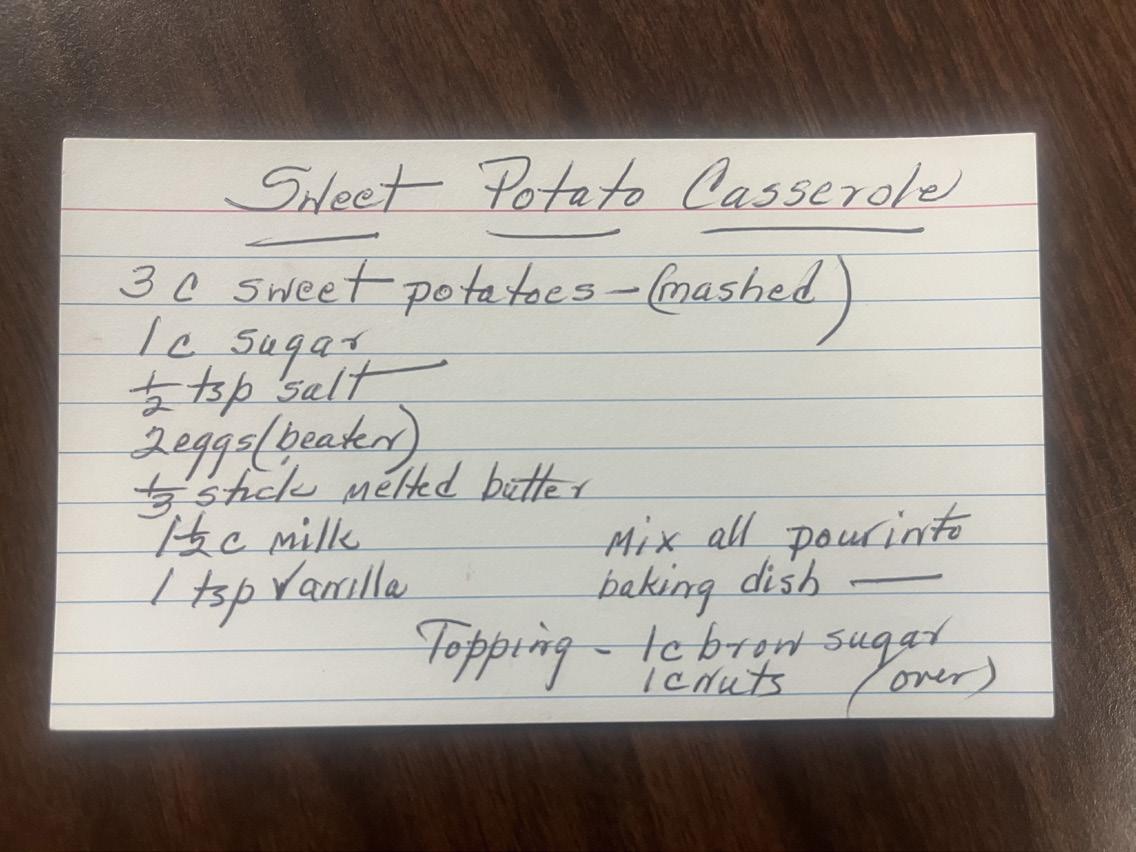 Sweet Potato Casserole
3 c sweet potatoes - (mashed)
1 c sugar
1/2 tsp salt
2 eggs (beaten)
1/3 stick melted butter
1 1/2 c milk
1 tsp Vanilla
Mix all pour into
baking dish —
Topping - 1 c brow sugar
1 c nuts (over)